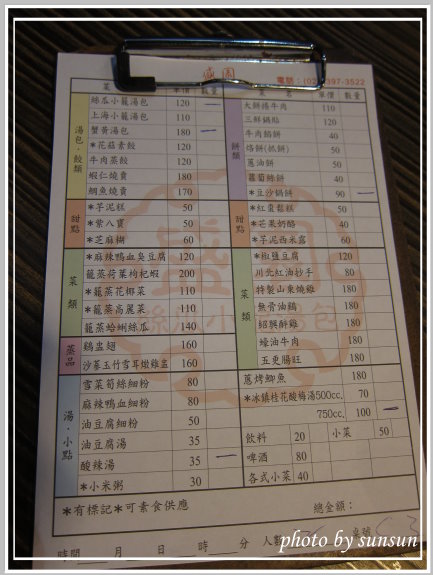 盛園
電話：(02)2397-3522
單價 數量
名 單價 數量
湯包．餃類
絲瓜小籠湯包 120 —
上海小籠湯包 110
蟹黃湯包 180 —
*花菇素餃 120
牛肉蒸餃 120
蝦仁燒賣 180
鯛魚燒賣 170
甜點
*芋泥糕 50
*紫八寶 50
*芝麻糊 60
菜類
*麻辣鴨血臭豆腐 120
籠蒸荷葉枸杞蝦 200
*籠蒸花椰菜 110
*籠蒸高麗菜 110
籠蒸蛤蜊絲瓜 140
蒸品
鷄盅翅 160
沙蔘玉竹雪耳燉雞盅 160
湯．小點
雪菜筍絲細粉 80
麻辣鴨血細粉 80
油豆腐細粉 50
油豆腐湯 35
酸辣湯 35 —
*小米粥 30
餅類
大餅捲牛肉 110
三鮮鍋貼 110
牛肉餡餅 40
焙餅(抓餅) 50
蔥油餅 50
蘿蔔絲餅 40
*豆沙鍋餅 90 —
甜點
*紅棗鬆糕 50
*芒果奶酪 40
*芋泥西米露 60
菜類
*椒鹽豆腐 120
川北紅油抄手 80
特製山東燒雞 180
無骨油鷄 180
紹興醉雞 180
蠔油牛肉 180
五更腸旺 180
蔥烤鯽魚 180
*冰鎮桂花酸梅湯500cc. 70
750cc. 100 —
飲料 20 小菜 50
啤酒 80
各式小菜 40
*有標記*可素食供應
總金額：
時間 月 日 時 分 人數
photo by sunsun